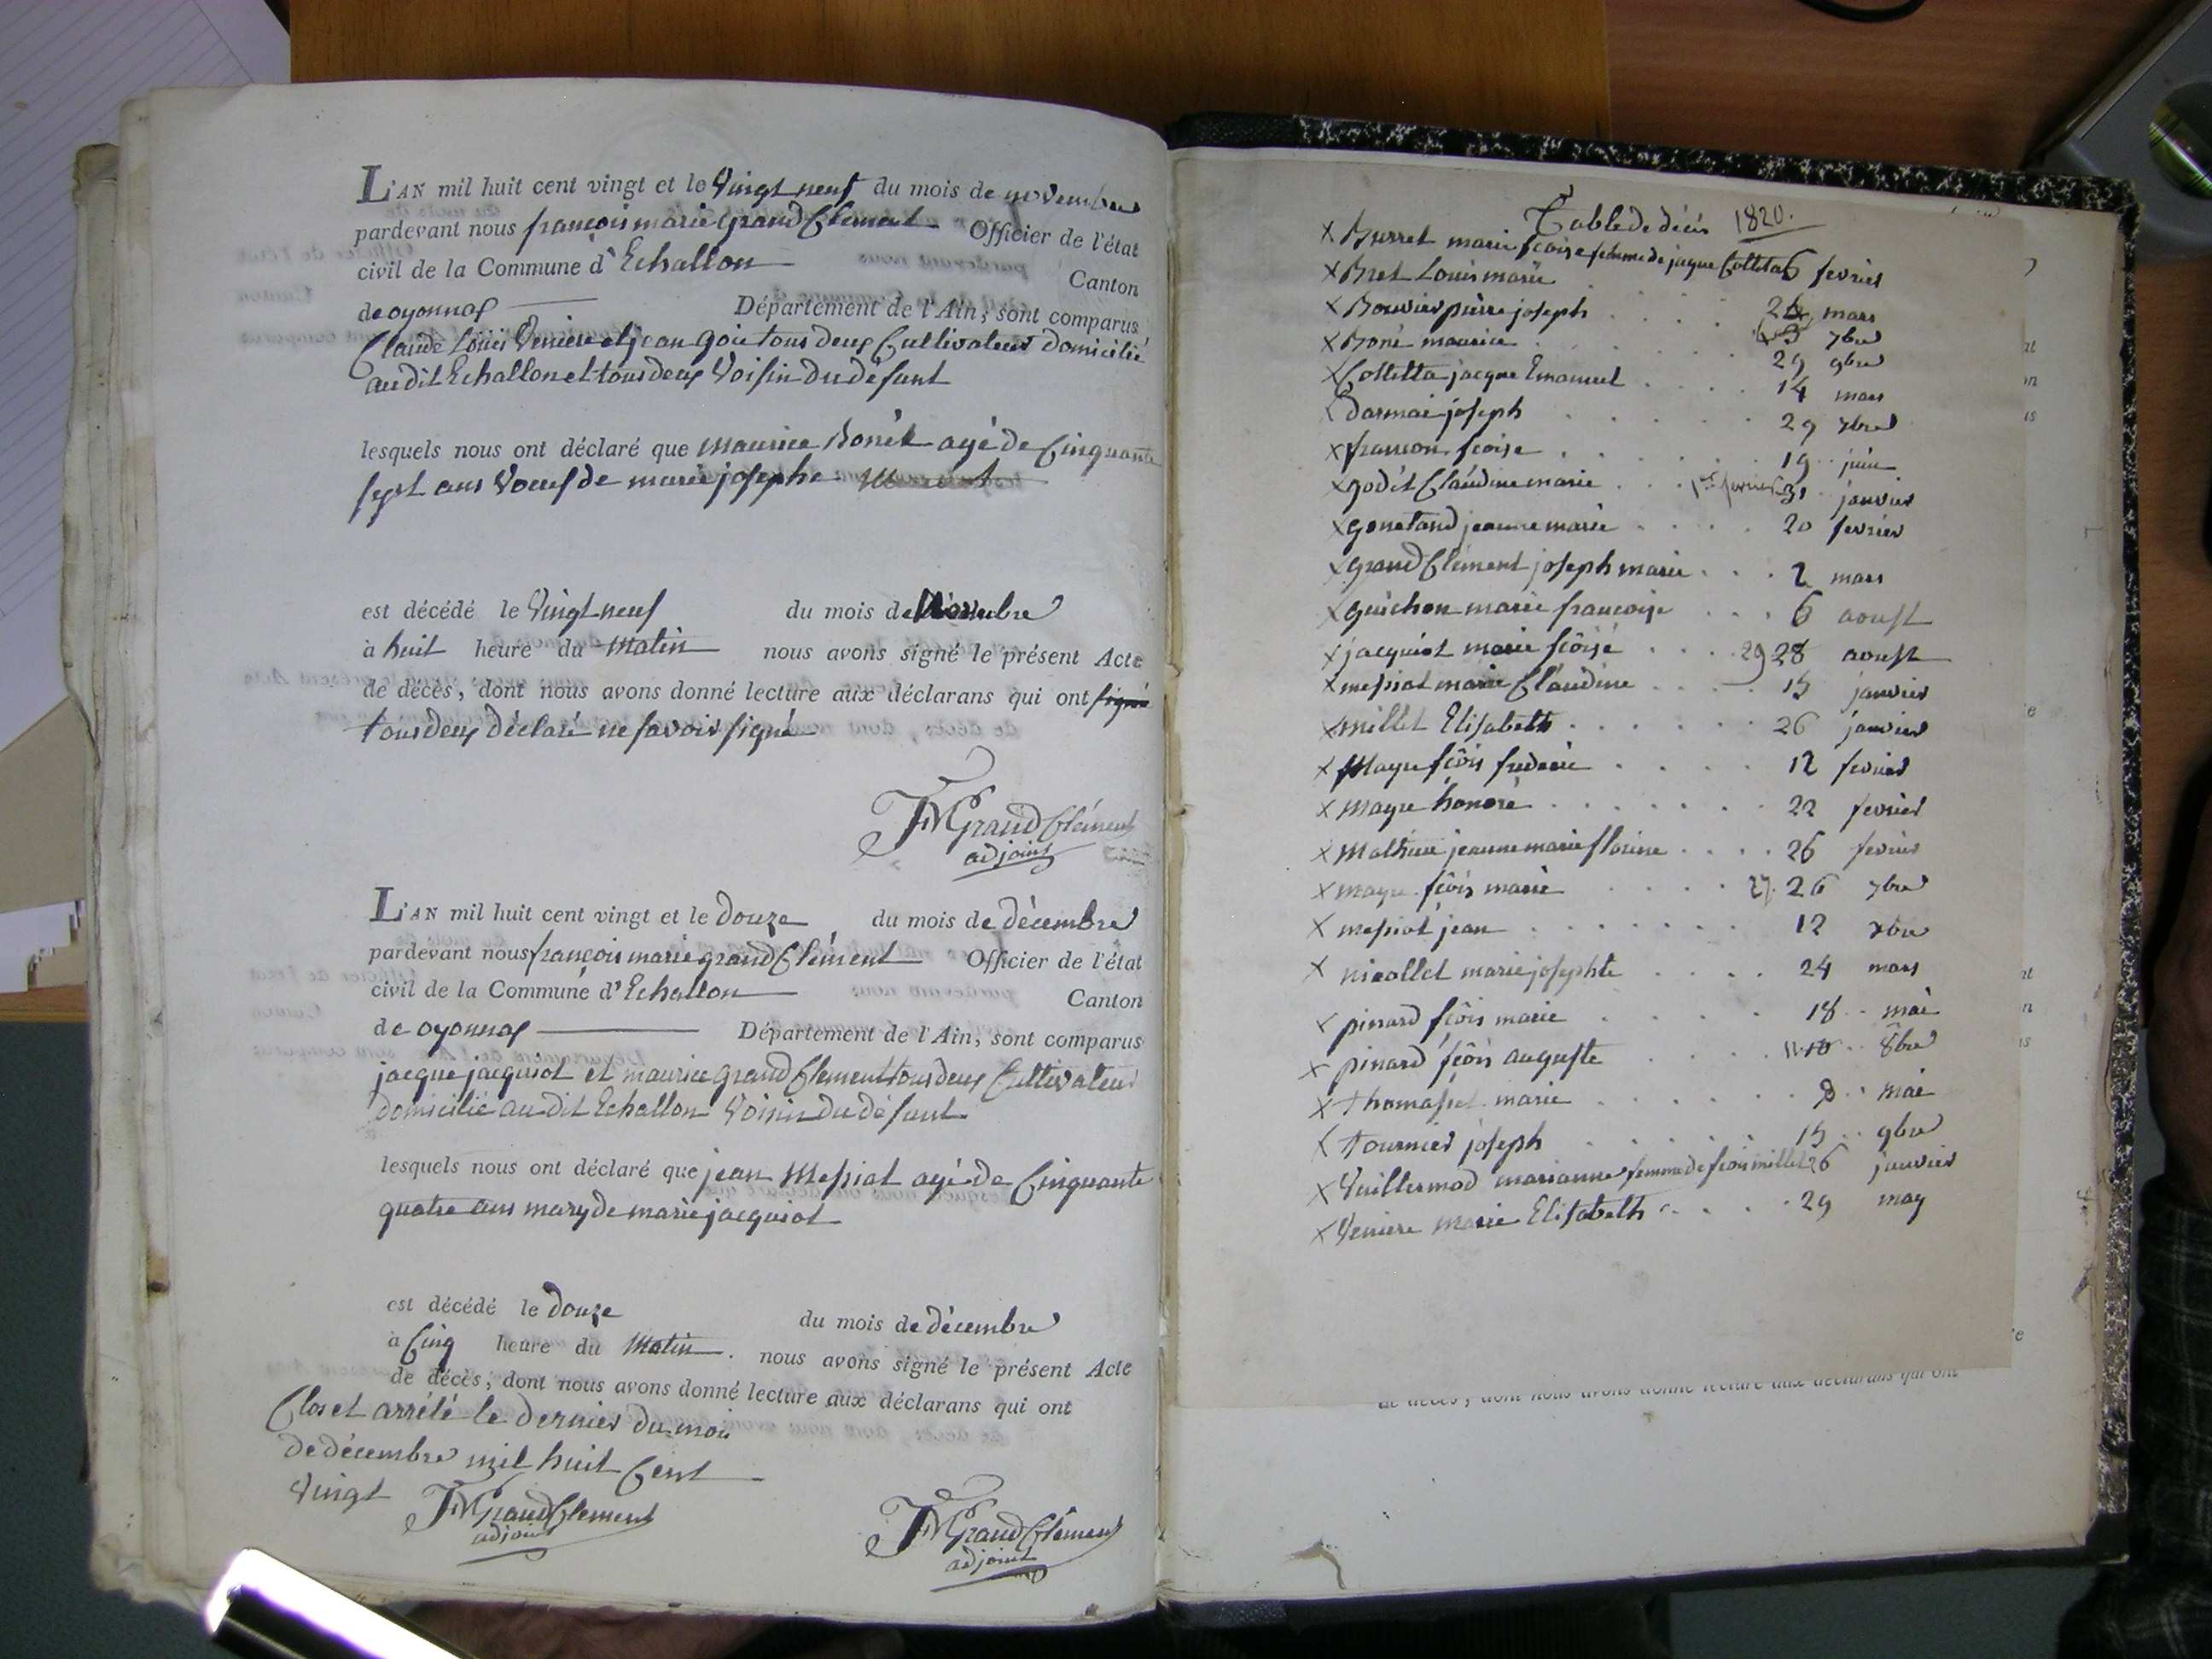 L'AN mil huit cent vingt et le vingt neuf du mois de novembre
pardevant nous françois marie grand Clement Officier de l'état
civil de la Commune d'Echallon Canton
de oyonnax Département de l'Ain, sont comparus
Claude Louis Veniere et jean goie tous deux Cultivateur domicilié
audit Echallon et tous deux Voisin du défunt
lesquels nous ont déclaré que maurice Bonét agé de Cinquante
sept ans Voeuf de marie josephe
est décédé le Vingt neuf du mois de Novembre
à huit heure du Matin nous avons signé le présent Acte
de décès, dont nous avons donné lecture aux déclarans qui ont signé
tous deux déclaré ne savoir signé
FMGrandClément
adjoint
L'AN mil huit cent vingt et le douze du mois de décembre
pardevant nous françois marie grand Clément Officier de l'état
civil de la Commune d'Echallon Canton
de oyonnax Département de l'Ain, sont comparus
jacque jacquiot et maurice grand Clement tous deux Cultivateur
domicilié audit Echallon Voisin du défunt
lesquels nous ont déclaré que jean Messiat agé de Cinquante
quatre ans mary de marie jacquiot
est décédé le douze du mois de décembre
à Cinq heure du Matin. nous avons signé le présent Acte
de décès, dont nous avons donné lecture aux déclarans qui ont
Clos et arrêté le dernier du moi
de décembre mil huit Cent
Vingt FMGrandClement
adjoint
FMGrandClément
adjoint
Table de décés 1820.
x Burret marie fçoise femme de jaque Colletta 6 fevrier
x Bret Louis marie
x Bouvier pierre joseph 26 mars
x Boné maurice 3 7bre
29 9bre
x Colletta jacque Emanuel 14 mars
x Darmai joseph 29 7bre
x françon fçoise 19 juin
x godét Claudine marie 1er fevrier 31 janvier
x gonetand jeanne marie 20 fevrier
x grand Clément joseph marie 2 mars
x guichon marie françoise 6 aoust
x jacquiot marie fçoise 29 28 aoust
x messiat marie Claudine 15 janvier
x millet Elisabeth 26 janvier
x Mayre fçois frederic 12 fevrier
x mayre honoré 22 fevrier
x Mathieu jeanne marie florine 26 fevrier
x mayre fçois marie 27. 26 7bre
x messiat jean 12 xbre
x nicollet marie josephte 24 mars
x pinard fçois marie 18 mai
x pinard fçois auguste 11 10 8bre
x thomasset marie 8 mai
x tournier joseph 15 9bre
x Vuillermod marianne femme de fçois millet 26 janvier
x Veniere marie Elisabeth 29 may
de décès, dont nous avons donné lecture aux déclarans qui ont